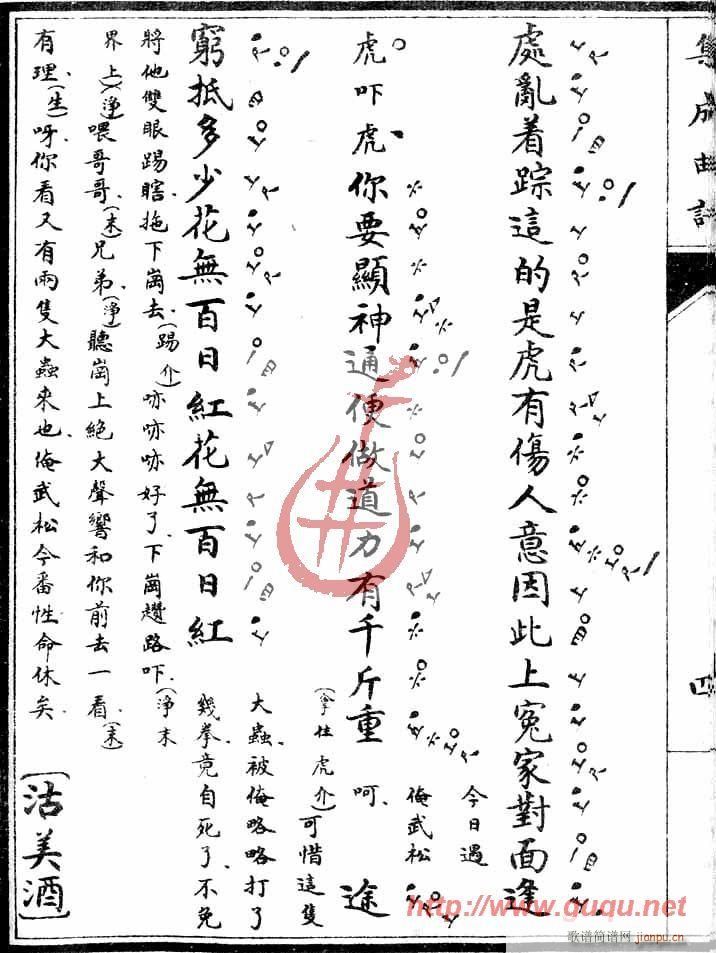 集成曲譜
四
處亂着踪這的是虎有傷人意因此上冤家對面逢
今日遇
俺武松
虎吓虎你要顯神通便做道力有千斤重 呵、 途
窮抵多少花無百日紅花無百日紅
(拿住虎介)可惜這隻
大蟲、被俺略略打了
幾拳、竟自死了、不免
將他雙眼踢瞎、拖下崗去、(踢介)哧哧哧好了、下崗趲路吓、(淨末
界上)(淨)喂哥哥、(末)兄弟、(淨)聽崗上絕大聲響和你前去一看、(末)
有理、(生)呀、你看又有兩隻大蟲來也、俺武松今番性命休矣、〔沽美酒〕
http://www.guqu.net
歌谱简谱网 jianpu.cn